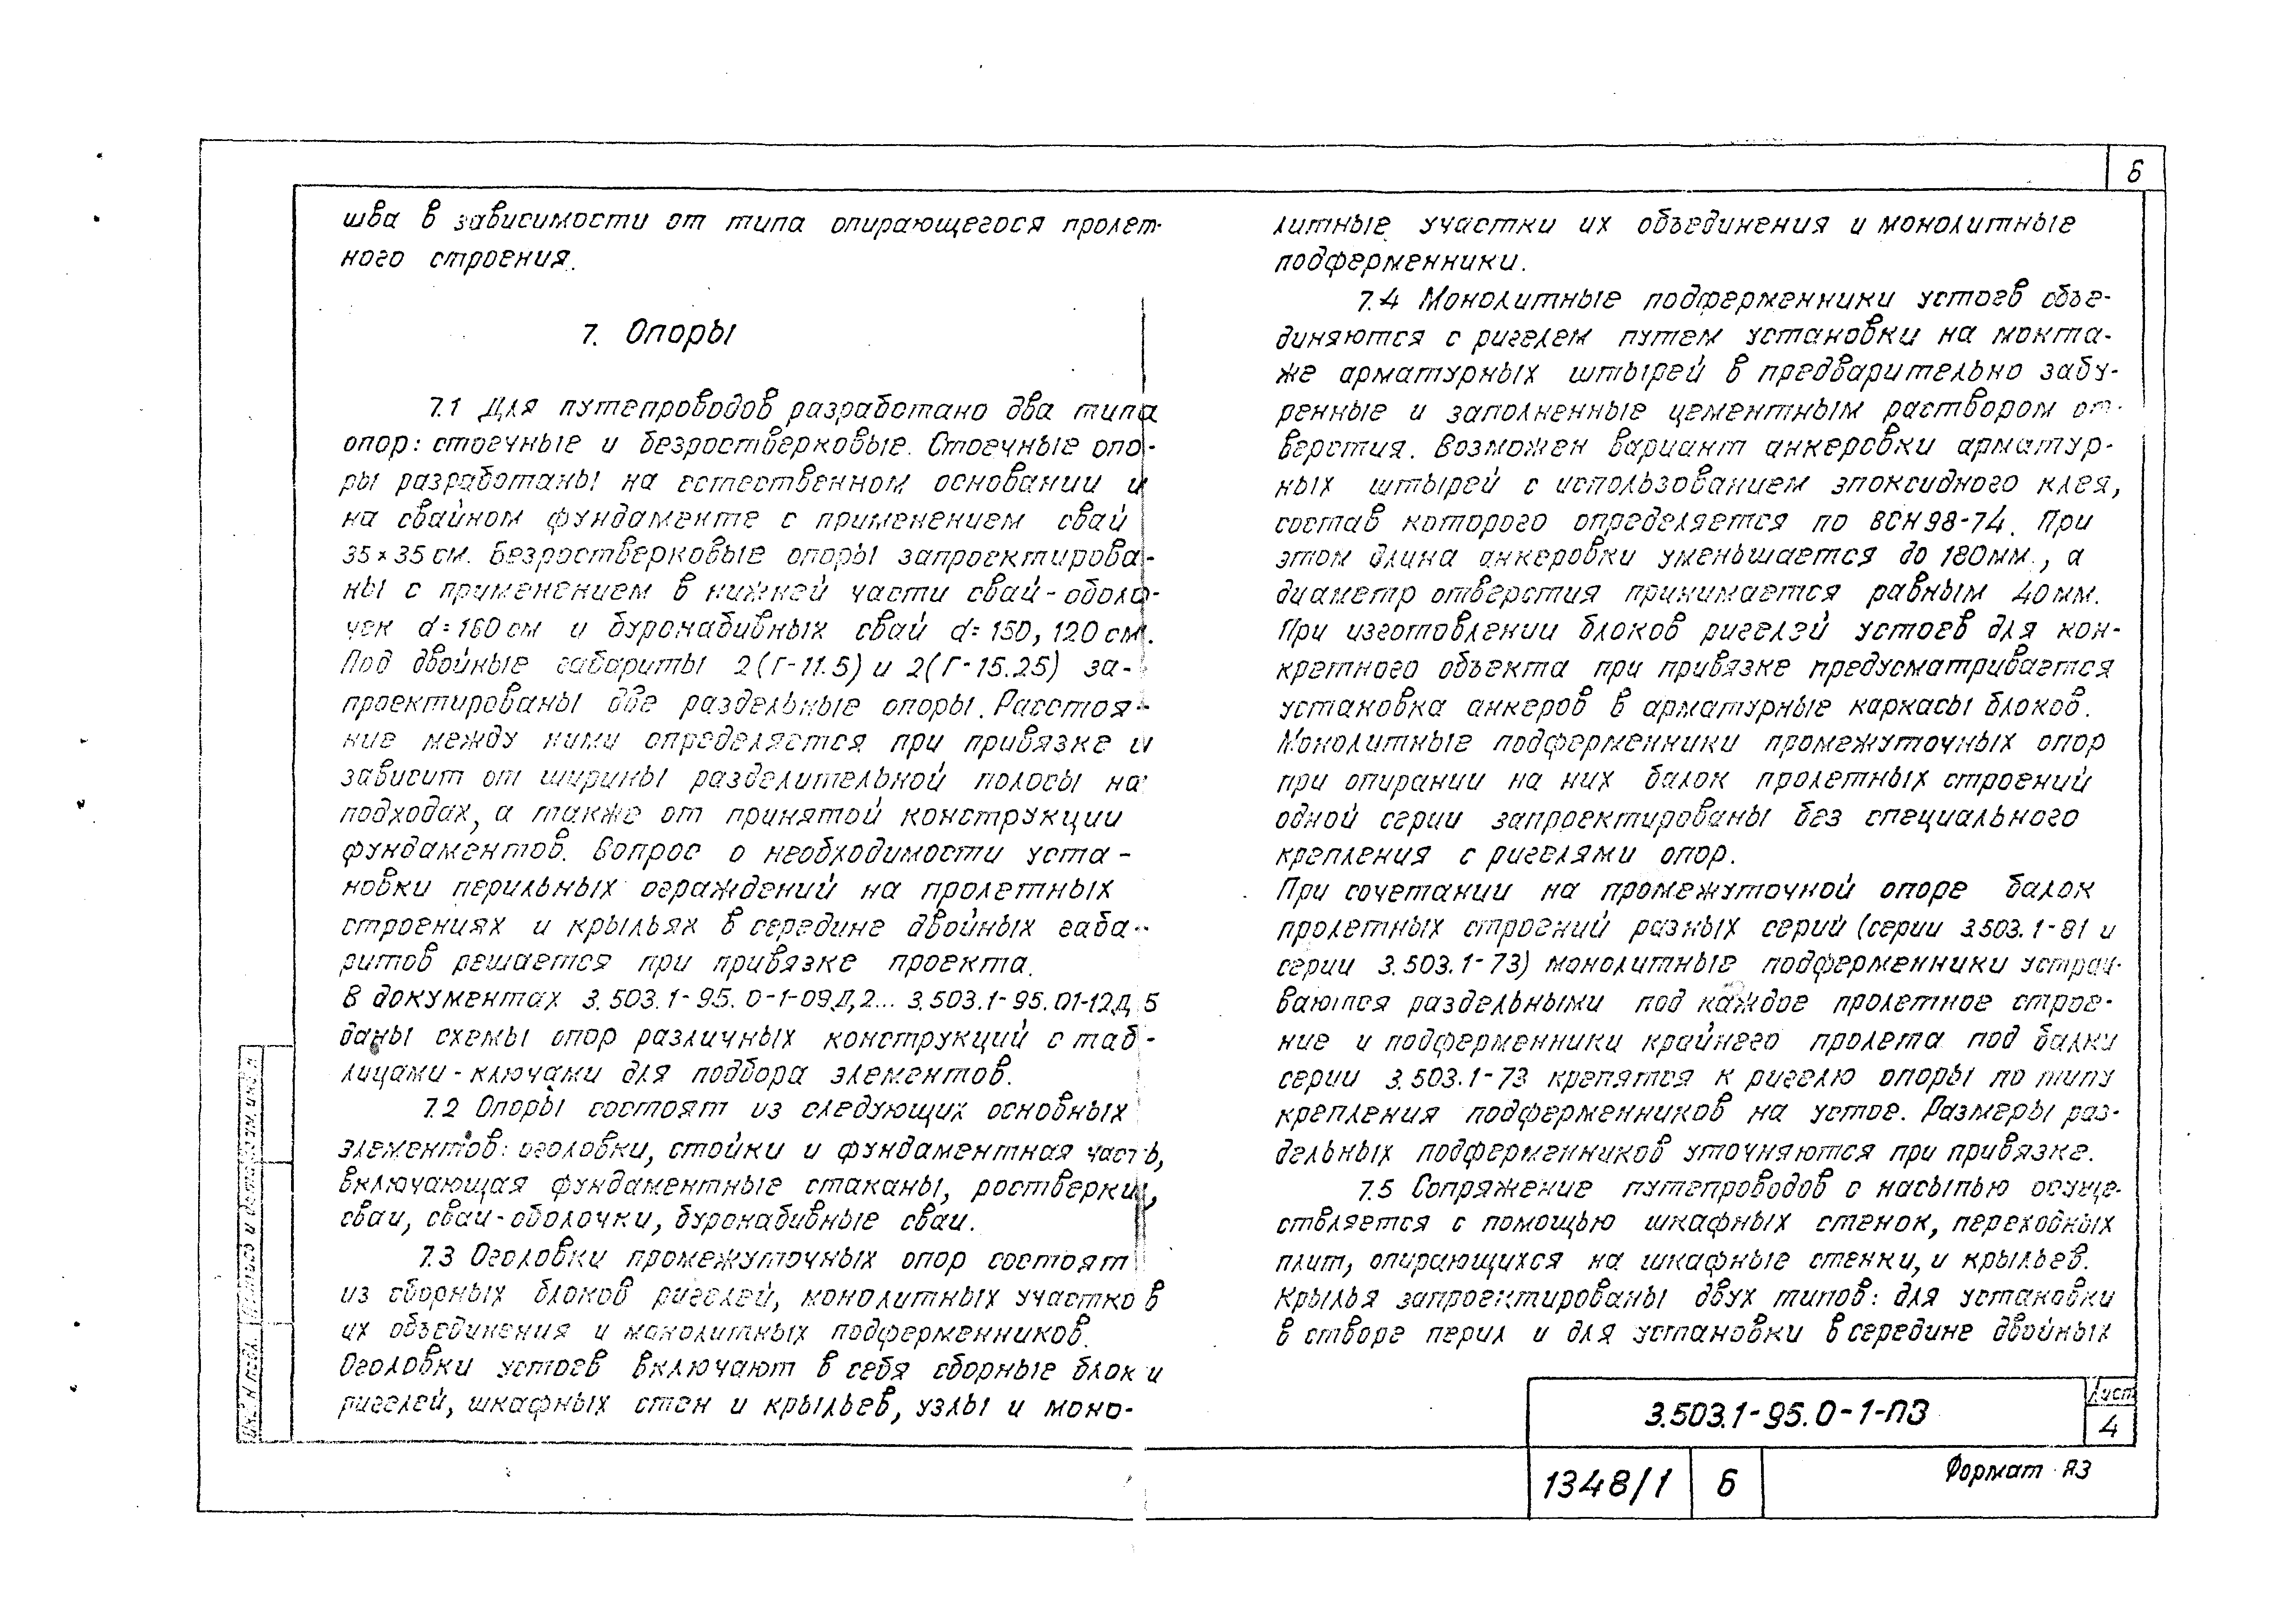 6
шва в зависимости от типа опирающегося пролет-
ного строения.
7. Опоры
7.1 Для путепроводов разработано два типа
опор: стоечные и безростверковые. Стоечные опо-
ры разработаны на естественном основании и
на свайном фундаменте с применением свай
35×35 см. Безростверковые опоры запроектирова-
ны с применением в нижней части свай-оболо-
чек d=160 см и буронабивных свай d=150, 120 см.
Под двойные габариты 2(Г-11.5) и 2(Г-15.25) за-
проектированы две раздельные опоры. Расстоя-
ние между ними определяется при привязке и
зависит от ширины разделительной полосы на
подходах, а также от принятой конструкции
фундаментов. Вопрос о необходимости уста-
новки перильных ограждений на пролетных
строениях и крыльях в середине двойных габа-
ритов решается при привязке проекта.
В документах 3.503.1-95.0-1-09Д,2... 3.503.1-95.01-12Д,5
даны схемы опор различных конструкций с таб-
лицами-ключами для подбора элементов.
7.2 Опоры состоят из следующих основных
элементов: оголовки, стойки и фундаментная часть,
включающая фундаментные стаканы, ростверки,
сваи, сваи-оболочки, буронабивные сваи.
7.3 Оголовки промежуточных опор состоят
из сборных блоков ригелей, монолитных участков
их объединения и монолитных подферменников.
Оголовки устоев включают в себя сборные блоки
ригелей, шкафных стен и крыльев, узлы и моно-
литные участки их объединения и монолитные
подферменники.
7.4 Монолитные подферменники устоев объе-
диняются с ригелем путем установки на монта-
же арматурных штырей в предварительно забу-
ренные и заполненные цементным раствором от-
верстия. Возможен вариант анкеровки арматур-
ных штырей с использованием эпоксидного клея,
состав которого определяется по ВСН 98-74. При
этом длина анкеровки уменьшается до 180мм., а
диаметр отверстия принимается равным 40мм.
При изготовлении блоков ригелей устоев для кон-
кретного объекта при привязке предусматривается
установка анкеров в арматурные каркасы блоков.
Монолитные подферменники промежуточных опор
при опирании на них балок пролетных строений
одной серии запроектированы без специального
крепления с ригелями опор.
При сочетании на промежуточной опоре балок
пролетных строений разных серий (серии 3.503.1-81 и
серии 3.503.1-73) монолитные подферменники устраи-
ваются раздельными под каждое пролетное строе-
ние и подферменники крайнего пролета под балки
серии 3.503.1-73 крепятся к ригелю опоры по типу
крепления подферменников на устое. Размеры раз-
дельных подферменников уточняются при привязке.
7.5 Сопряжение путепроводов с насыпью осуще-
ствляется с помощью шкафных стенок, переходных
плит, опирающихся на шкафные стенки, и крыльев.
Крылья запроектированы двух типов: для установки
в створе перил и для установки в середине двойных
3.503.1-95.0-1-ПЗ
Лист
4
1348/1
6
Формат А3